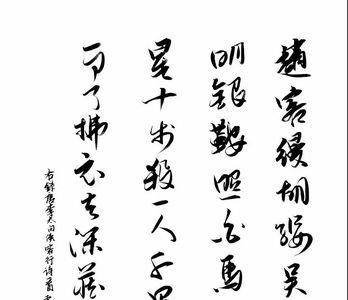 趙客縵胡纓吳
明銀鞍照白馬
星十步殺一人千里
事了拂衣去深藏
右錄唐李太白俠客行詩一首